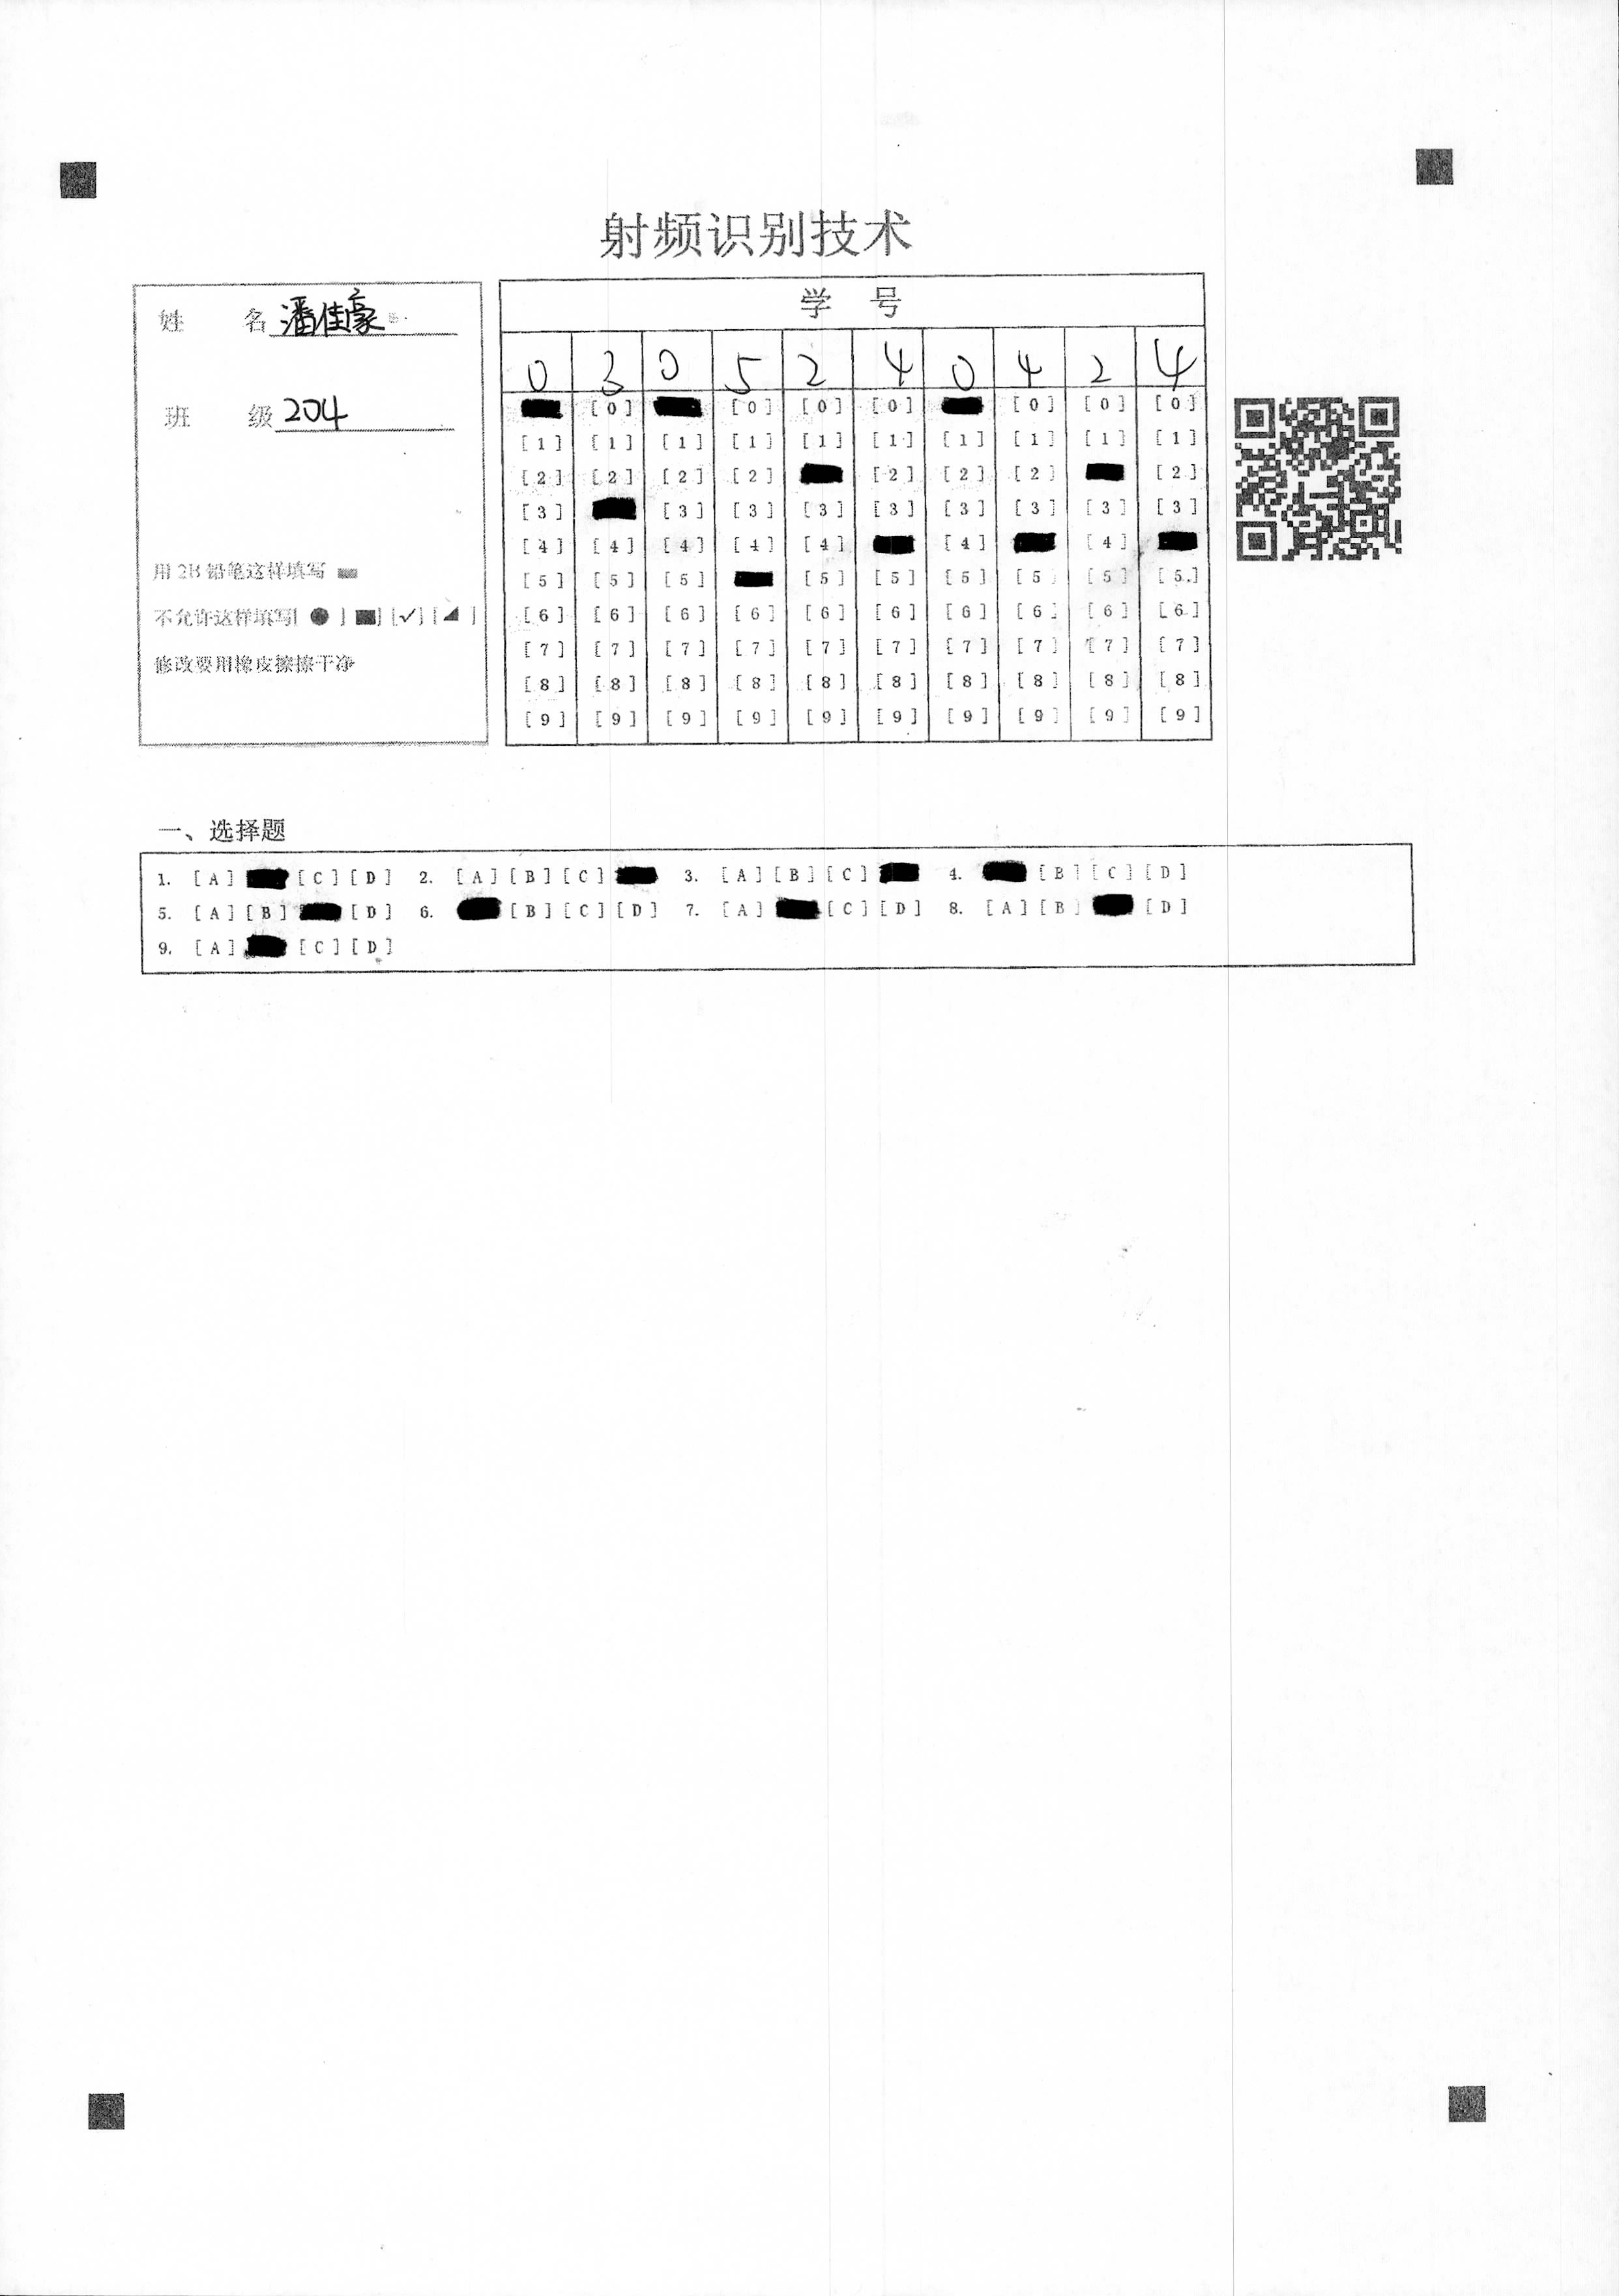 射频识别技术
姓 名 潘佳豪
班 级 204
用 2B 铅笔这样填写
不允许这样填写[ ● ] [■] [✓] [◢ ]
修改要用橡皮擦擦干净
学 号
0 3 0 5 2 4 0 4 2 4
[0] [0] [0] [0] [0] [0] [0]
[1] [1] [1] [1] [1] [1] [1] [1] [1] [1]
[2] [2] [2] [2] [2] [2] [2] [2]
[3] [3] [3] [3] [3] [3] [3] [3] [3]
[4] [4] [4] [4] [4] [4] [4]
[5] [5] [5] [5] [5] [5] [5] [5] [5]
[6] [6] [6] [6] [6] [6] [6] [6] [6] [6]
[7] [7] [7] [7] [7] [7] [7] [7] [7] [7]
[8] [8] [8] [8] [8] [8] [8] [8] [8] [8]
[9] [9] [9] [9] [9] [9] [9] [9] [9] [9]
一、选择题
1. [A] [C] [D] 2. [A] [B] [C] 3. [A] [B] [C] 4. [B] [C] [D]
5. [A] [B] [D] 6. [B] [C] [D] 7. [A] [C] [D] 8. [A] [B] [D]
9. [A] [C] [D]